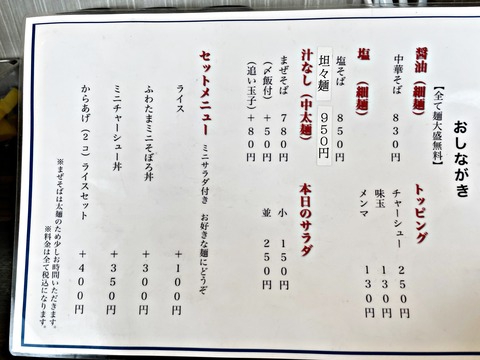 おしながき
【全て麺大盛無料】
醤油（細麺）
中華そば　８３０円
塩　（細麺）
塩そば　８５０円
坦々麺　９５０円
汁なし（中太麺）
まぜそば　７８０円
（〆飯付）＋５０円
（追い玉子）＋８０円
トッピング
チャーシュー　２５０円
味玉　１３０円
メンマ　１３０円
本日のサラダ
小　１５０円
並　２５０円
セットメニュー　ミニサラダ付き　お好きな麺にどうぞ
ライス　＋１００円
ふわたまミニそぼろ丼　＋３００円
ミニチャーシュー丼　＋３５０円
からあげ（２コ）ライスセット　＋４００円
※まぜそばは太麺のため少しお時間いただきます。
※料金は全て税込になります。